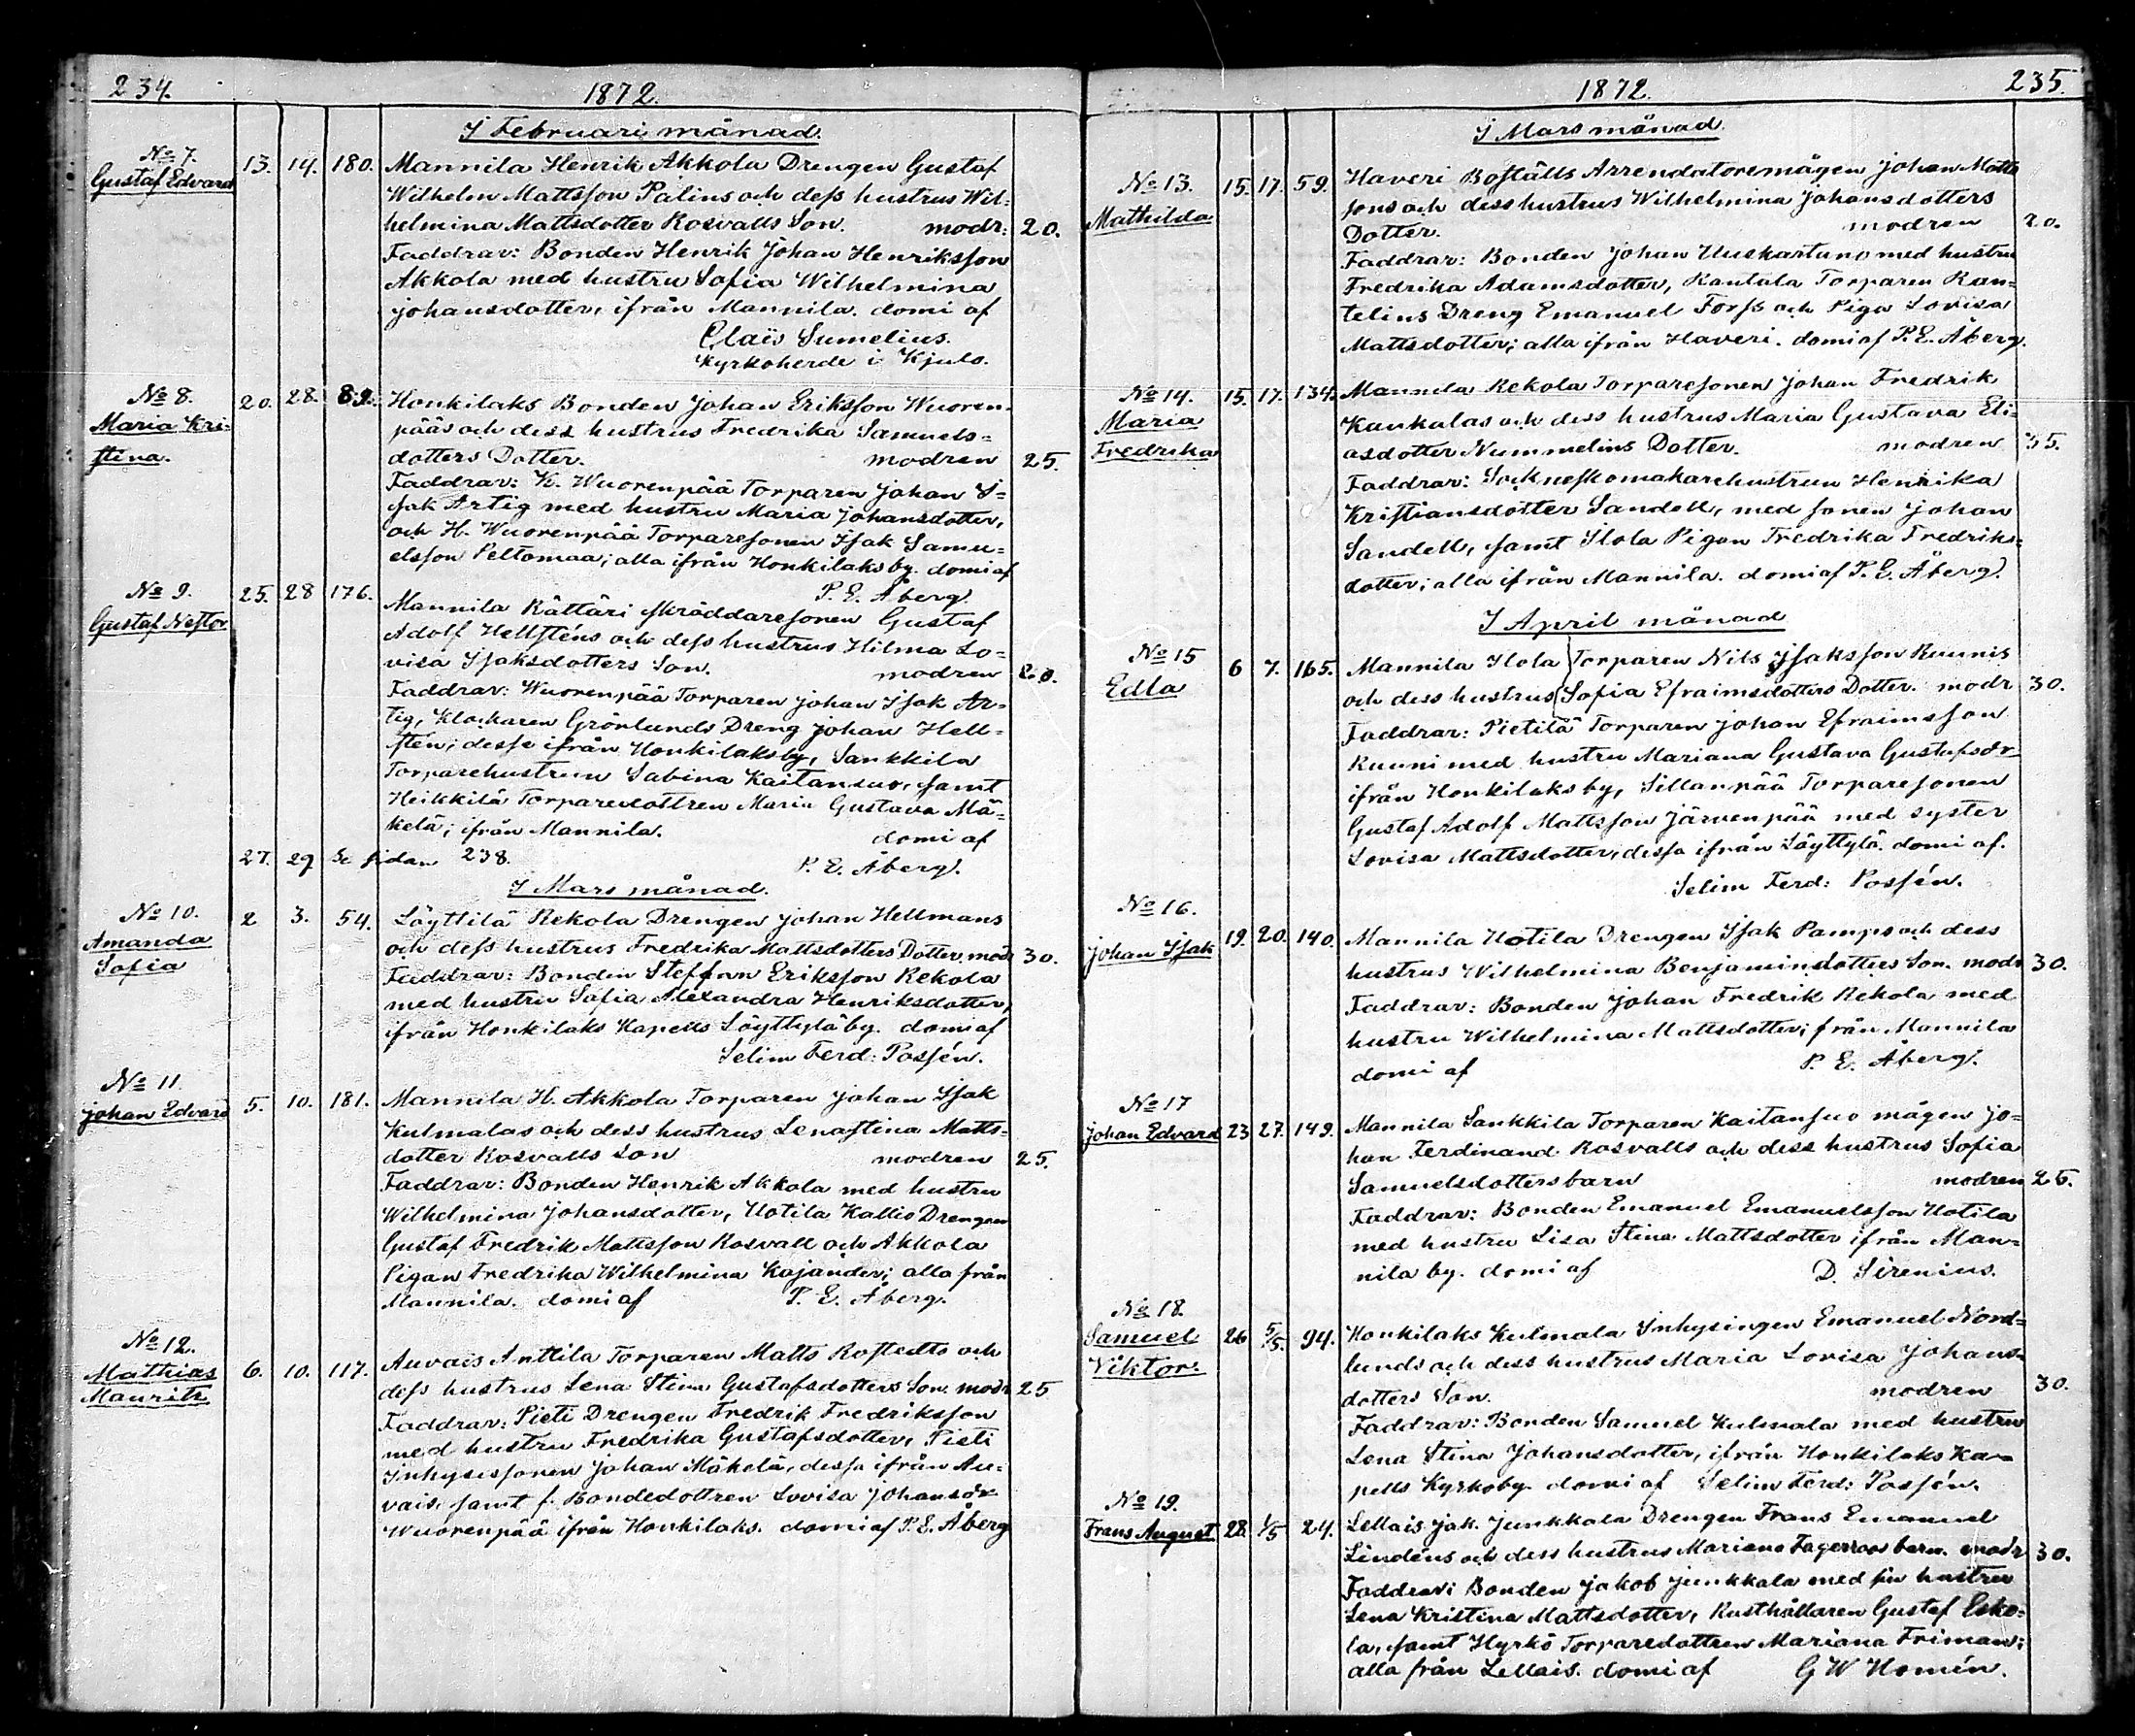 234.
1872.
I Februari månad.
No 7. 13. 14. 180. Mannila Henrik Akkola Drengen Gustaf
Gustaf Edvard Wilhelm Mattsson Palins och dess hustrus Wil=
helmina Mattsdotter Rosvalls Son. modr: 20.
Faddrar: Bonden Henrik Johan Henriksson
Akkola med hustru Sofia Wilhelmina
Johansdotter, ifrån Mannila. domi af
Claës Sumelius.
Kyrkoherde i Kjulo.
No 8. 20. 28. 89. Honkilaks Bonden Johan Eriksson Wuoren=
Maria Kri= pääs och dess hustrus Fredrika Samuels=
stina. dotters Dotter. modren 25.
Faddrar: K. Wuorenpää Torparen Johan I=
sak Artig med hustru Maria Johansdotter,
och H. Wuorenpää Torparesonen Isak Samu=
elsson Peltomaa; alla ifrån Honkilaks by. domi af
P. E. Åberg.
No 9. 25. 28 176. Mannila Rättäri skräddaresonen Gustaf
Gustaf Nestor Adolf Hellsténs och dess hustrus Hilma Lo=
visa Isaksdotters Son. modren 20.
Faddrar: Wuorenpää Torparen Johan Isak Ar=
tig, Klockaren Grönlunds Dreng Johan Hell=
stén; desse ifrån Honkilaks by, Sankkila
Torparehustrun Sabina Kaitansuo, samt
Heikkilä Torparedottren Maria Gustava Mä=
kelä; ifrån Mannila. domi af
27. 29 Se sidan 238. P. E. Åberg.
I Mars månad.
No 10. 2 3. 54. Löyttilä Rekola Drengen Johan Hellmans
Amanda och dess hustrus Fredrika Mattsdotters Dotter, modr 30.
Sofia Faddrar: Bonden Steffan Eriksson Rekola
med hustru Sofia Alexandra Henriksdotter,
ifrån Honkilaks Kapells Löyttylä by. domi af
Selim Ferd: Possén.
No 11.
Johan Edvard 5. 10. 181. Mannila H. Akkola Torparen Johan Isak
Kulmalas och dess hustrus Lenastina Matts=
dotter Rosvalls Son modren 25.
Faddrar: Bonden Henrik Akkola med hustru
Wilhelmina Johansdotter, Uotila Kallio Drengen
Gustaf Fredrik Mattsson Rosvall och Akkola
Pigan Fredrika Wilhelmina Kajander; alla från
Mannila. domi af P. E. Åberg.
No 12.
Mathias 6. 10. 117. Auvais Anttila Torparen Matts Rostedts och
Mauritz dess hustrus Lena Stina Gustafsdotters Son. modr 25
Faddrar: Pieti Drengen Fredrik Fredriksson
med hustru Fredrika Gustafsdotter, Pieti
Inhysessonen Johan Mäkelä, desse ifrån Au=
vais, samt f. Bondedottren Lovisa Johansdr
Wuorenpää ifrån Honkilaks. domi af P. E. Åberg
1872.
235.
I Mars månad.
No 13. 15. 17. 59. Haveri Boställs Arrendatoremågen Johan Matts
Mathilda sons och dess hustrus Wilhelmina Johansdotters
Dotter. modren 20.
Faddrar: Bonden Johan Uuskartano med hustru
Fredrika Adamsdotter, Rantala Torparen Ran=
telins Dreng Emanuel Forss och Piga Lovisa
Mattsdotter; alla ifrån Haveri. domi af P. E. Åberg.
No 14. 15. 17. 134. Mannila Rekola Torparesonen Johan Fredrik
Maria Kankalas och dess hustrus Maria Gustava Eli=
Fredrika asdotter Nummelins Dotter. modren 35.
Faddrar: Sockneskomakarehustrun Henrika
Kristiansdotter Sandell, med sonen Johan
Sandell, samt Ilola Pigan Fredrika Fredriks=
dotter; alla ifrån Mannila. domi af P. E. Åberg.
I April månad
No 15 6 7. 165. Mannila Ilola Torparen Nils Isaksson Ruunis
Edla och dess hustrus Sofia Efraimsdotters Dotter. modr 30.
Faddrar: Pietilä Torparen Johan Efraimsson
Ruuni med hustru Mariana Gustava Gustafsdr
ifrån Honkilaks by, Sillanpää Torparesonen
Gustaf Adolf Mattsson Järvenpää med syster
Lovisa Mattsdotter, dessa ifrån Löyttylä. domi af.
Selim Ferd: Possén.
No 16.
Johan Isak 19. 20. 140. Mannila Uotila Drengen Isak Pamps och dess
hustrus Wilhelmina Benjaminsdotters Son. modr 30.
Faddrar: Bonden Johan Fredrik Rekola med
hustru Wilhelmina Mattsdotter; från Mannila
domi af P. E. Åberg.
No 17
Johan Edvard 23 27. 149. Mannila Sankkila Torparen Kaitansuo mågen Jo=
han Ferdinand Rosvalls och dess hustrus Sofia
Samuelsdotters barn modren 25.
Faddrar: Bonden Emanuel Emanuelsson Uotila
med hustru Lisa Stina Mattsdotter ifrån Man=
nila by. domi af D. Sirenius.
No 18.
Samuel 26 5/5. 94. Honkilaks Kulmala Inhysingen Emanuel Nord=
Viktor. lunds och dess hustrus Maria Lovisa Johans=
dotters Son. modren 30.
Faddrar: Bonden Samuel Kulmala med hustru
Lena Stina Johansdotter, ifrån Honkilaks Ka=
pells Kyrkoby. domi af Selim Ferd: Possén.
No 19.
Frans August 28. 1/5 24. Lellais Jak. Junkkala Drengen Frans Emanuel
Lindéns och dess hustrus Mariana Fagerroos barn. modr 30.
Faddrar: Bonden Jakob Junkkala med sin hustru
Lena Kristina Mattsdotter, Rusthållaren Gustaf Esko=
la, samt Hyrkö Torparedottren Mariana Friman;
alla från Lellais. domi af G W Homén.